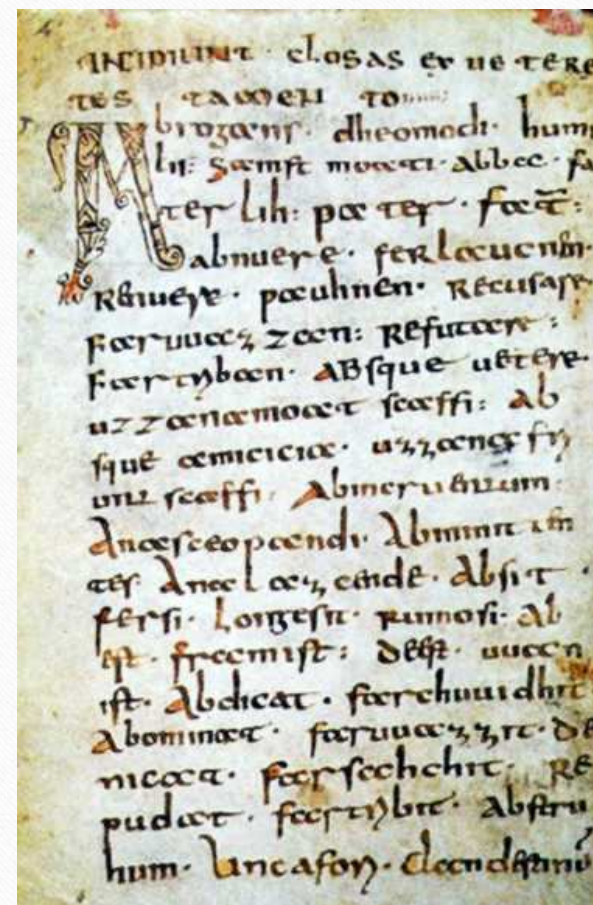 INCIPIUNT · closas ex ue tere
tes tamen to
Abrogans · dheomodi · humi
lis: samft moati · abba · fa
ter lih: pater · fat̄:
abnuere · ferlaucnen·
Renuere · pauhnen · Recusare
faruuazzan: Refutare:
fartriban · ABsque uetere·
uzzanamoat scaffi: Ab
sque amicicia · uzzana fri
unt scaffi: Abincruentum:
Anasceopandi· Abminen
tes Analazende · Absit ·
fersi· Longesit rumosi· Ab
est · framist: deest · uuan
ist· Abdicat · farchuuidhit
Abominat · faruuazzit· de
nicat · farsahchit · Re
pudat · fartribit · Abstru
hum ·